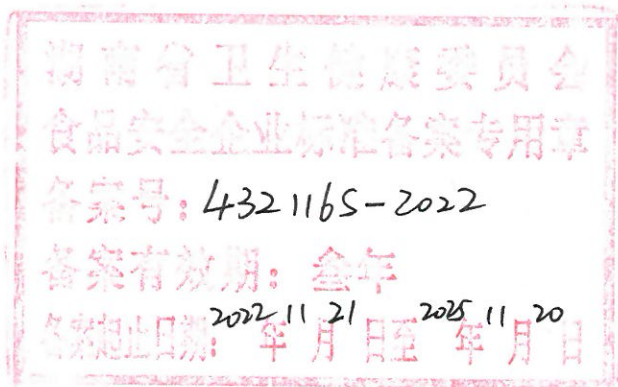 湖南省卫生健康委员会
食品安全企业标准备案专用章
备案号：4321165-2022
备案有效期：叁年
备案起止日期：2022年11月21日至2025年11月20日